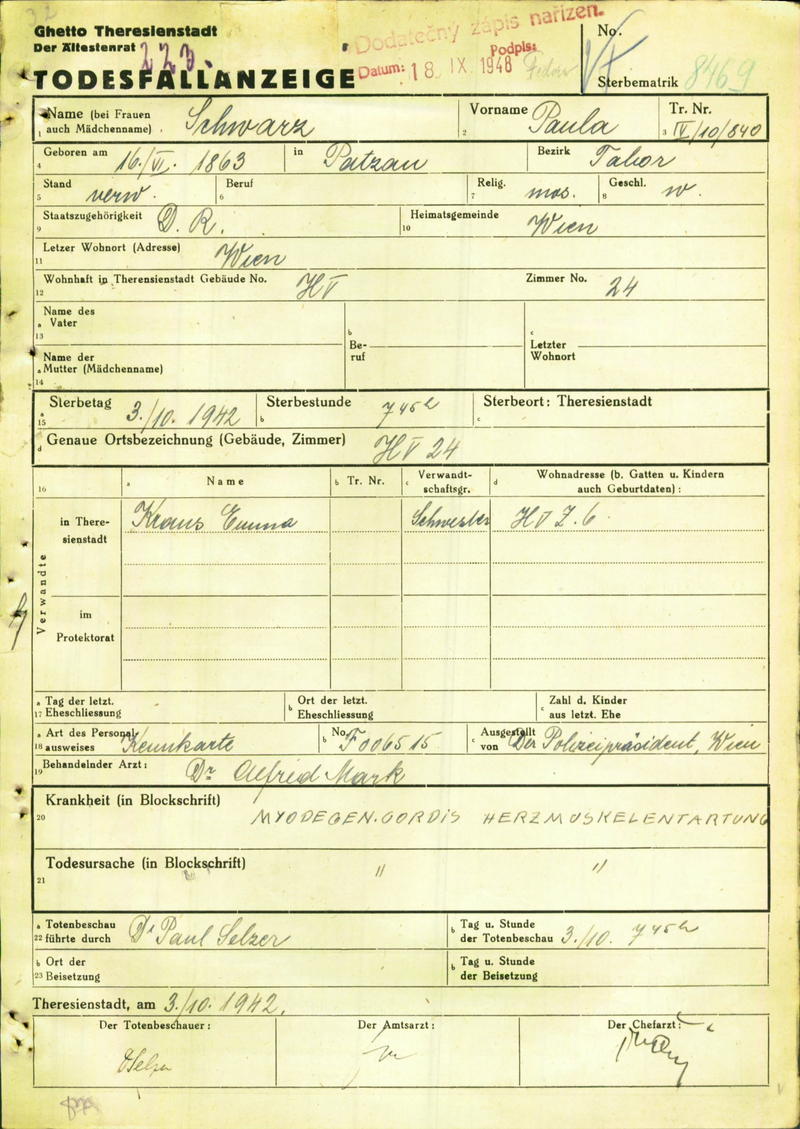 Ghetto Theresienstadt
Der Ältestenrat
223.
Dodatečný zápis nařízen.
Datum: 18 IX 1948 Podpis:
No.
Sterbematrik 8469
TODESFALLANZEIGE
Name (bei Frauen auch Mädchenname) Schwarz
Vorname Paula
Tr. Nr. IV/10/840
Geboren am 16./VI. 1863 in Patzau Bezirk Tabor
Stand verw. Beruf Relig. mos. Geschl. w.
Staatszugehörigkeit D. R. Heimatsgemeinde Wien
Letzer Wohnort (Adresse) Wien
Wohnhaft in Theresienstadt Gebäude No. H V Zimmer No. 24
Name des Vater
Beruf
Letzter Wohnort
Name der Mutter (Mädchenname)
Sterbetag 3./10. 1942 Sterbestunde 7 45 h Sterbeort: Theresienstadt
Genaue Ortsbezeichnung (Gebäude, Zimmer) H V 24
Name Tr. Nr. Verwandtschaftsgr. Wohnadresse (b. Gatten u. Kindern auch Geburtdaten):
Verwandte
in Theresienstadt Kraus Emma Schwester H V Z. 6.
im Protektorat
Tag der letzt. Eheschliessung
Ort der letzt. Eheschliessung
Zahl d. Kinder aus letzt. Ehe
Art des Personalausweises Kennkarte No. F006515 Ausgestellt von Der Polizeipräsident, Wien
Behandelnder Arzt: Dr Alfred Mark
Krankheit (in Blockschrift) MYODEGEN. CORDIS HERZMUSKELENTARTUNG
Todesursache (in Blockschrift) " "
Totenbeschau führte durch Dr Paul Selzer Tag u. Stunde der Totenbeschau 3./10. 7 45 h
Ort der Beisetzung
Tag u. Stunde der Beisetzung
Theresienstadt, am 3./10. 1942.
Der Totenbeschauer: Der Amtsarzt: Der Chefarzt: